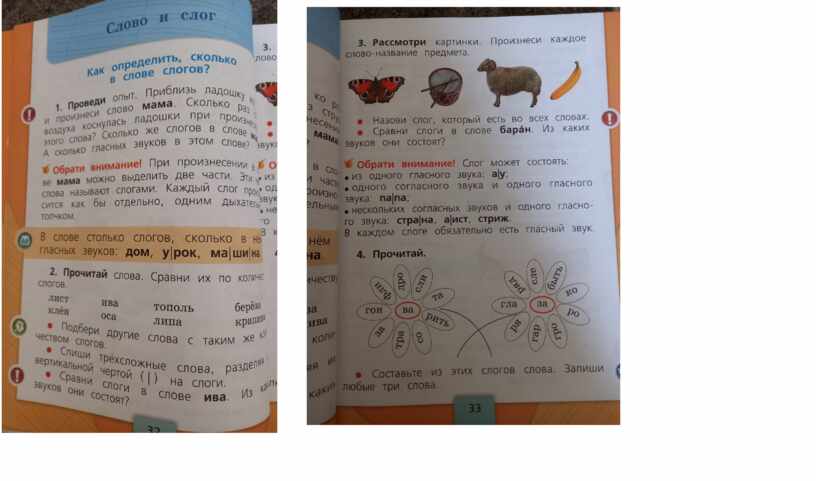 Слово и слог
Как определить, сколько
в слове слогов?
1. Проведи опыт. Приблизь ладошку
и произнеси слово мама. Сколько раз
воздуха коснулась ладошки при произне
этого слова? Сколько же слогов в слове
А сколько гласных звуков в этом слове?
Обрати внимание! При произнесении
ве мама можно выделить две части. Эти
слова называют слогами. Каждый слог про
сится как бы отдельно, одним дыхатель
толчком.
В слове столько слогов, сколько в не
гласных звуков: дом, у|рок, ма|ши|на
2. Прочитай слова. Сравни их по количе
слогов.
лист ива тополь берёза
клён оса липа крапива
Подбери другие слова с таким же
чеством слогов.
Спиши трёхсложные слова, разделяя
вертикальной чертой (|) на слоги.
Сравни слоги в слове ива. Из
звуков они состоят?
32
3. Рассмотри картинки. Произнеси каждое
слово-название предмета.
Назови слог, который есть во всех словах.
Сравни слоги в слове бара́н. Из каких
звуков они состоят?
Обрати внимание! Слог может состоять:
из одного гласного звука: а|у;
одного согласного звука и одного гласного
звука: па|па;
нескольких согласных звуков и одного гласно-
го звука: стра|на, а|ист, стриж.
В каждом слоге обязательно есть гласный звук.
4. Прочитай.
дро
сли
та
рить
со
тра
ва
гон
ва
сле
быть
ко
ро
гро
гар
ря
гла
ряд
за
Составьте из этих слогов слова. Запиши
любые три слова.
33